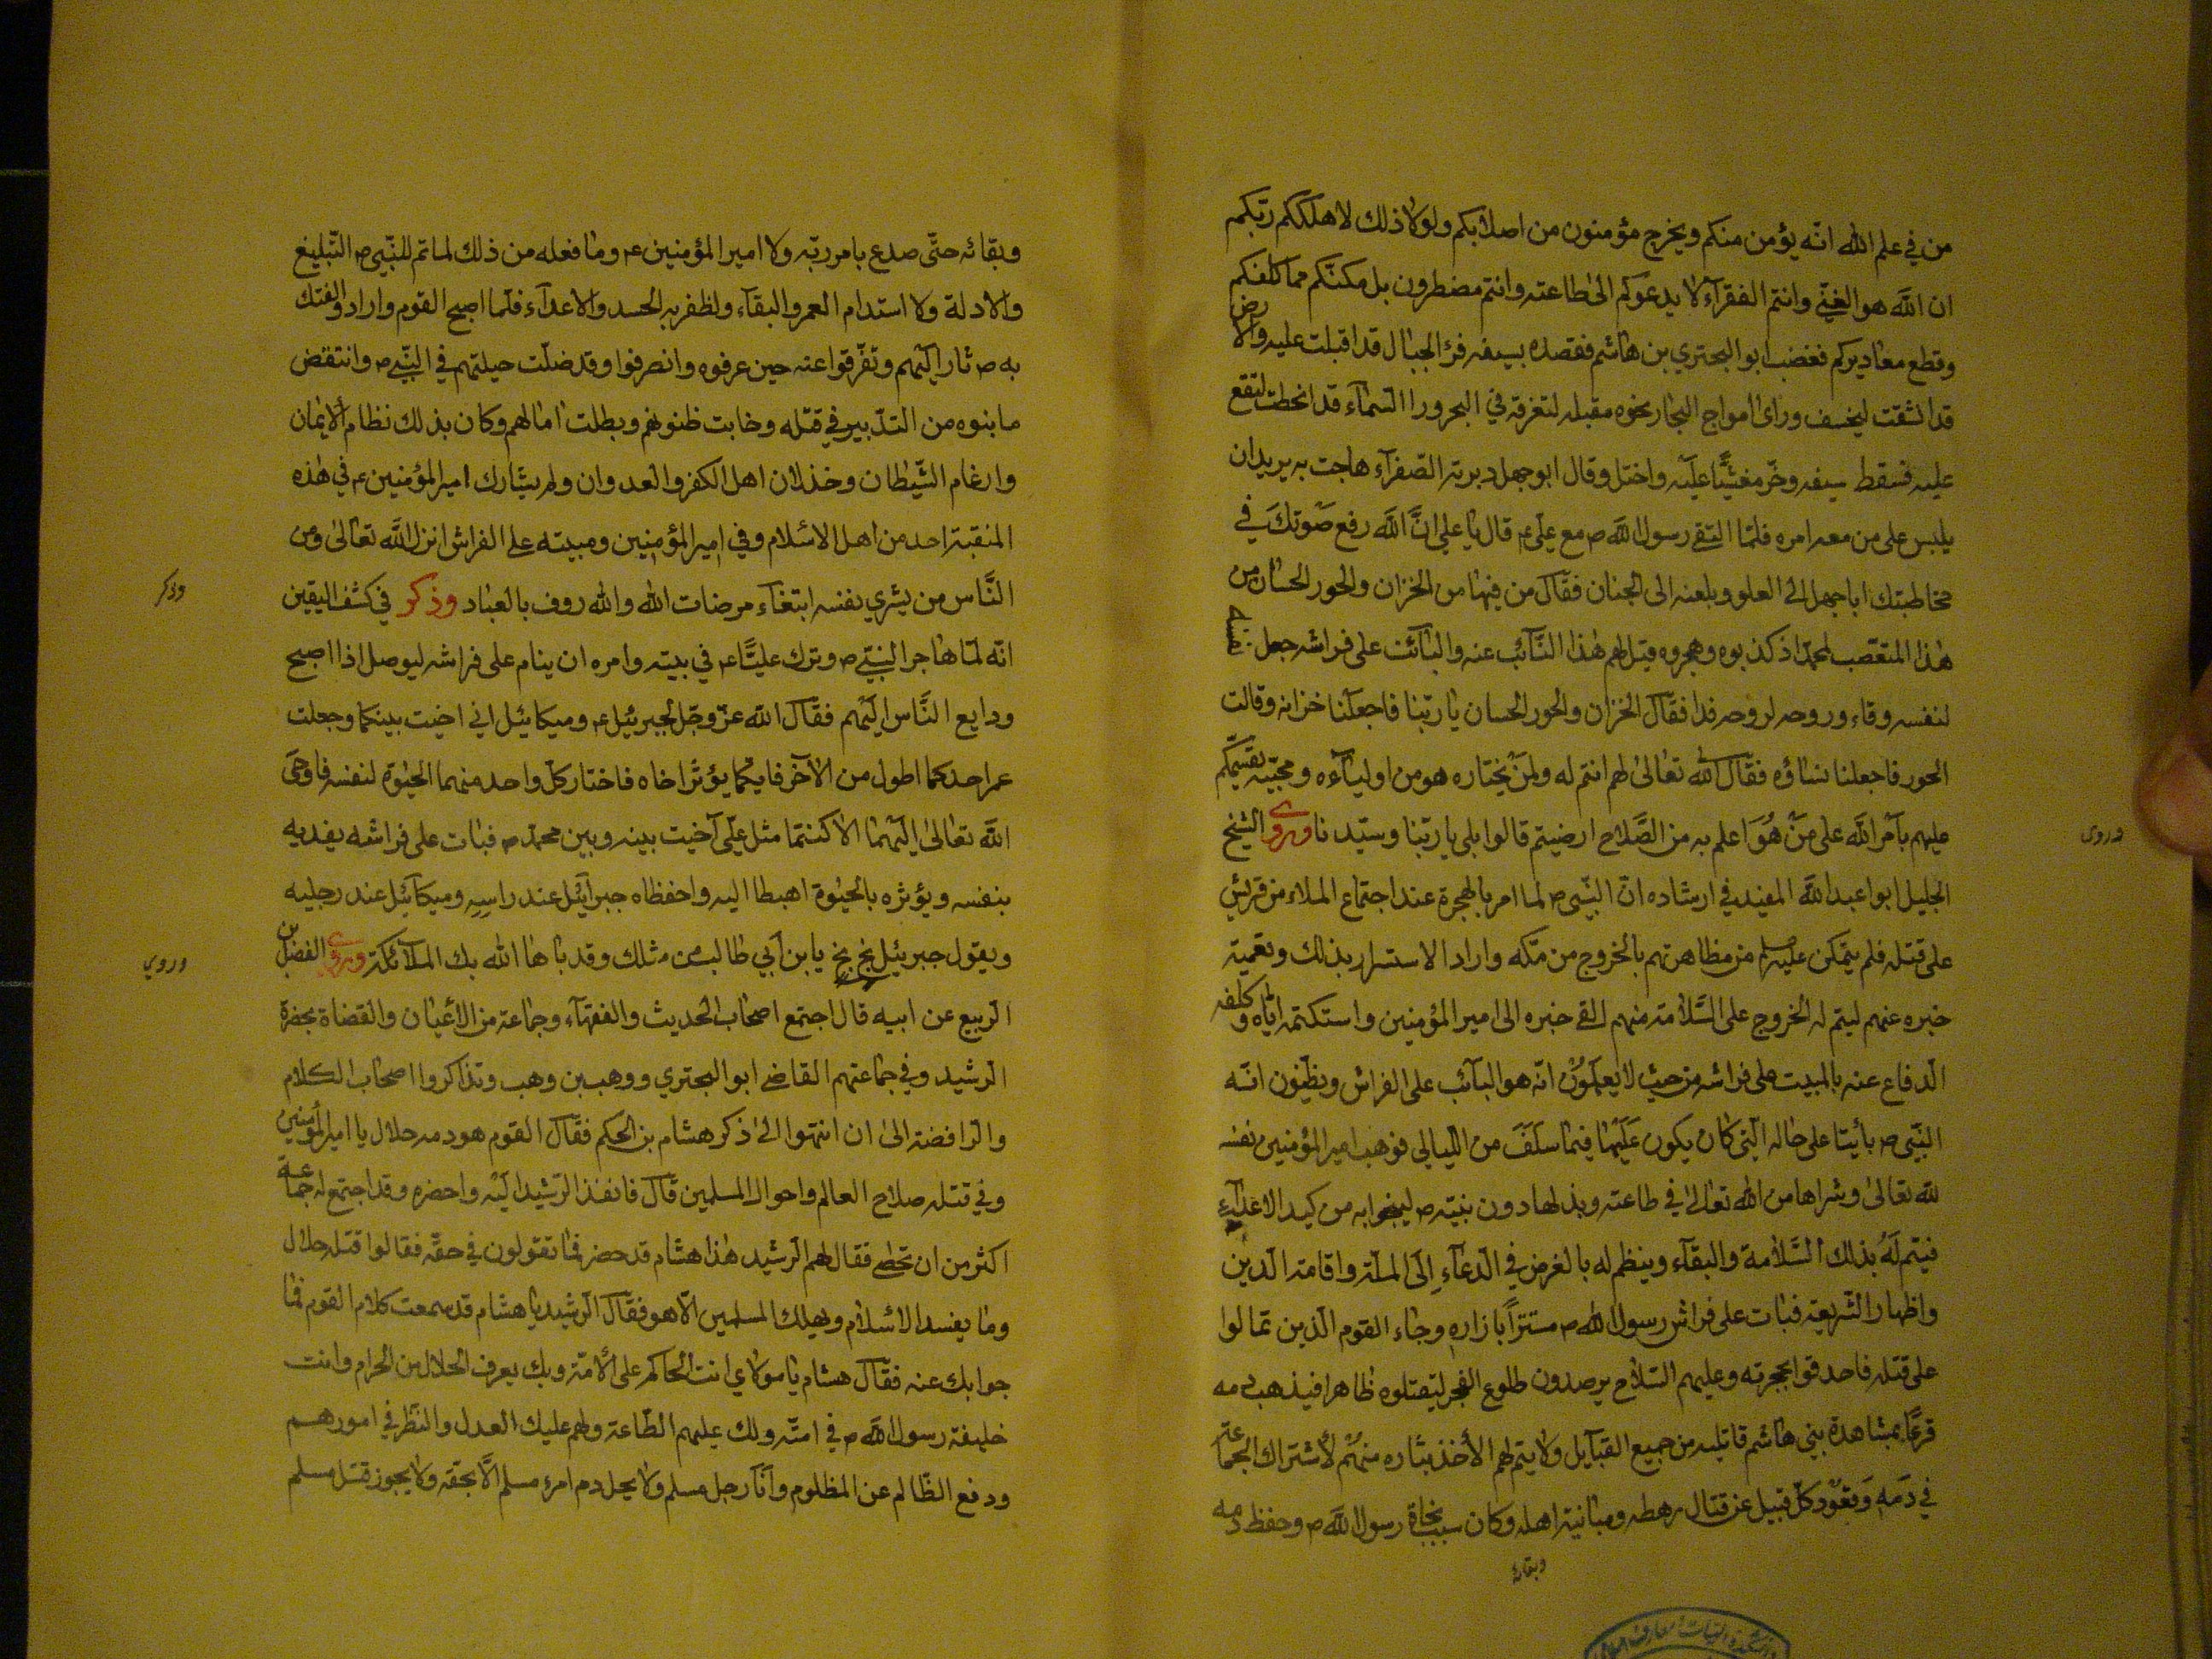 من في علم الله انّه يؤمن منكم ويخرج مؤمنون من اصلابكم ولولا ذلك لاهلككم ربّكم
ان الله هو الغنيّ وانتم الفقرآء لا يدعوكم الى طاعته وانتم مضطرون بل مكنّكم مما كلفكم
وقطع معاذيركم فغضب ابو البحتري بن هاشم فقصده بسيفه فرئ الجبال قد اقبلت عليه والارض
قد انشقت ليخسف وراى امواج البحار نحوه مقبله لتغرقه في البحر ورا السماء قد انحطت لتقع
عليه فسقط سيفه وخرّ مغشيًّا عليه واختل وقال ابو جهل دبرته الصّفرآء هاجت به يريد ان
يلبس على من معه امره فلمّا التقى رسول الله ص مع عليّ ع قال يا علي انّ الله رفع صوتك في
مخاطبتك ابا جهل الى العلو وبلعنه الى الجنان فقال من فيها من الخزان والحور الحسان من
هذا المتعصّب لمحمّد اذ كذبوه وهجروه قيل لهم هذا النّائب عنه والبائت على فراشه جعل
لنفسه وقاء وروحه لروحه فدا فقال الخزان والحور الحسان يا ربّنا فاجعلنا خزانه وقالت
الحور فاجعلنا نساؤه فقال الله تعالى لهم انتم له ولمن يختاره هو من اولياءه ومحبّيه يقسّمكم
عليهم بامر الله على من هو اعلم به من الصّلاح ارضيتم قالوا بلى يا ربّنا وسيّدنا وروى الشيخ
وروى
الجليل ابوا عبد الله المفيد في ارشاده انّ النّبيّ ص لما امر بالهجرة عند اجتماع الملاء من قريش
على قتله فلم يتمكن عليه لم من مظاهرتهم بالخروج من مكّه واراد الاستسرار بذلك وتعمية
خبره عنهم ليتم له الخروج على السّلامة منهم القى خبره الى امير المؤمنين واستكتمه ايّاه وكلفه
الدفاع عنه بالمبيت على فراشه من حيث لا يعلمون انّه هو البآئت على الفراش ويظنّون انّه
النّبيّ ص بائيتا على حاله الّتي كان يكون عليها فيما سلف من اللّيالي فوهب امير المؤمنين نفسه
لله تعالى وشراها من الله تعالى في طاعته وبذلها دون نبيّه ص لينجوا به من كيد الاعدآء
فيتم له بذلك السّلامة والبقآء وينظم له بالغرض في الدّعآء الى الملّة واقامة الدين
واظهار الشريعة فبات على فراش رسول الله ص مستترًا بازاره وجاء القوم الذين تمالوا
على قتله فاحدقوا بحجرته وعليهم السّلاح يرصدون طلوع الفجر ليقتلوه ظاهرا فيذهب دمه
فرغًا بمشاهدة بني هاشم قاتليه من جميع القبآيل ولا يتم لهم الأخذ بثاره منهم لأشتراك الجماعة
في دمه وقعود كلّ قبيل عن قتال رهطه ومباينة اهله وكان سبب نجاة رسول الله ص وحفظ دمه
وبقائه
وبقائه حتّى صدع بامر ربّه ولا امير المؤمنين ع وما فعله من ذلك لما تم للنّبيّ ص التّبليغ
والادلة ولا استدام العمر والبقآء ولظفر به الحسد والاعدآء فلّما اصبح القوم وارادو الفتك
به ص ثار اليهم وتفّرقوا عنه حين عرفوه وانصرفوا وقد ضلّت حيلتهم في النّبيّ ص وانتقض
ما بنوه من التدّبير في قتله وخابت ظنونهم وبطلت امالهم وكان بذلك نظام ألايمان
وارغام الشّيطان وخذلان اهل الكفر والعدوان ولم يشارك امير المؤمنين ع في هذه
المنقبة احد من اهل الاسلام وفي امير المؤمنين ومبيته على الفراش انزل الله تعالى ومن
النّاس من يشري نفسه ابتغاء مرضات الله والله روف بالعباد وذكر في كشف اليقين
وذكر
انّه لمّا هاجر النبيّ ص وترك عليًّا ع في بيته وامره ان ينام على فراشه ليوصل اذا اصبح
ودايع النّاس اليهم فقال الله عزّ وجّل لجبرئيل ع وميكائيل اني اخيت بينكما وجعلت
عمر احدكما اطول من الآخر فايكما يؤثر اخاه فاختار كلّ واحد منهما الحيوة لنفسه فاوحى
الله تعالى اليهما الا كنتما مثل عليّ آخيت بينه وبين محمّد ص فبات على فراشه يفديه
بنفسه ويؤثره بالحيوة اهبطا اليه واحفظاه جبرآئيل عند راسه وميكآئيل عند رجليه
ويقول جبرئيل بخ بخ يا بن أبي طالب من مثلك وقد باها الله بك الملآئكة وروى الفضل بن
وروي
الربيع عن ابيه قال اجتمع اصحاب الحديث والفقهآء وجماعة من الأعيان والقضاة بحضرة
الرشيد وفي جماعتهم القاضي ابو البحتري ووهب بن وهب وتذاكروا اصحاب الكلام
والرافضة الى ان انتهوا الى ذكر هشام بن الحكم فقال القوم هو دمه حلال يا امير المؤمنين
وفي قتله صلاح العالم واحوال المسلمين قال فانفذ الرّشيد اليه واحضره وقد اجتمع له جماعة
اكثر من ان تحصى فقال لهم الرشيد هذا هشام قد حضر فما تقولون في حقّه فقالوا قتله حلال
وما يفسد الاسلام ويهلك المسلمين الّا هو فقال الرشيد يا هشام قد سمعت كلام القوم فما
جوابك عنه فقال هشام يا مولاي انت الحاكم على الأمّة وبك يعرف الحلال من الحرام وانت
خليفة رسول الله ص في امّته ولك عليهم الطّاعة ولهم عليك العدل والنّظر في امورهم
ودفع الظّالم عن المظلوم وانا رجل مسلم ولا يحل دم امرء مسلم الّا بحقّه ولا يجوز قتل مسلم